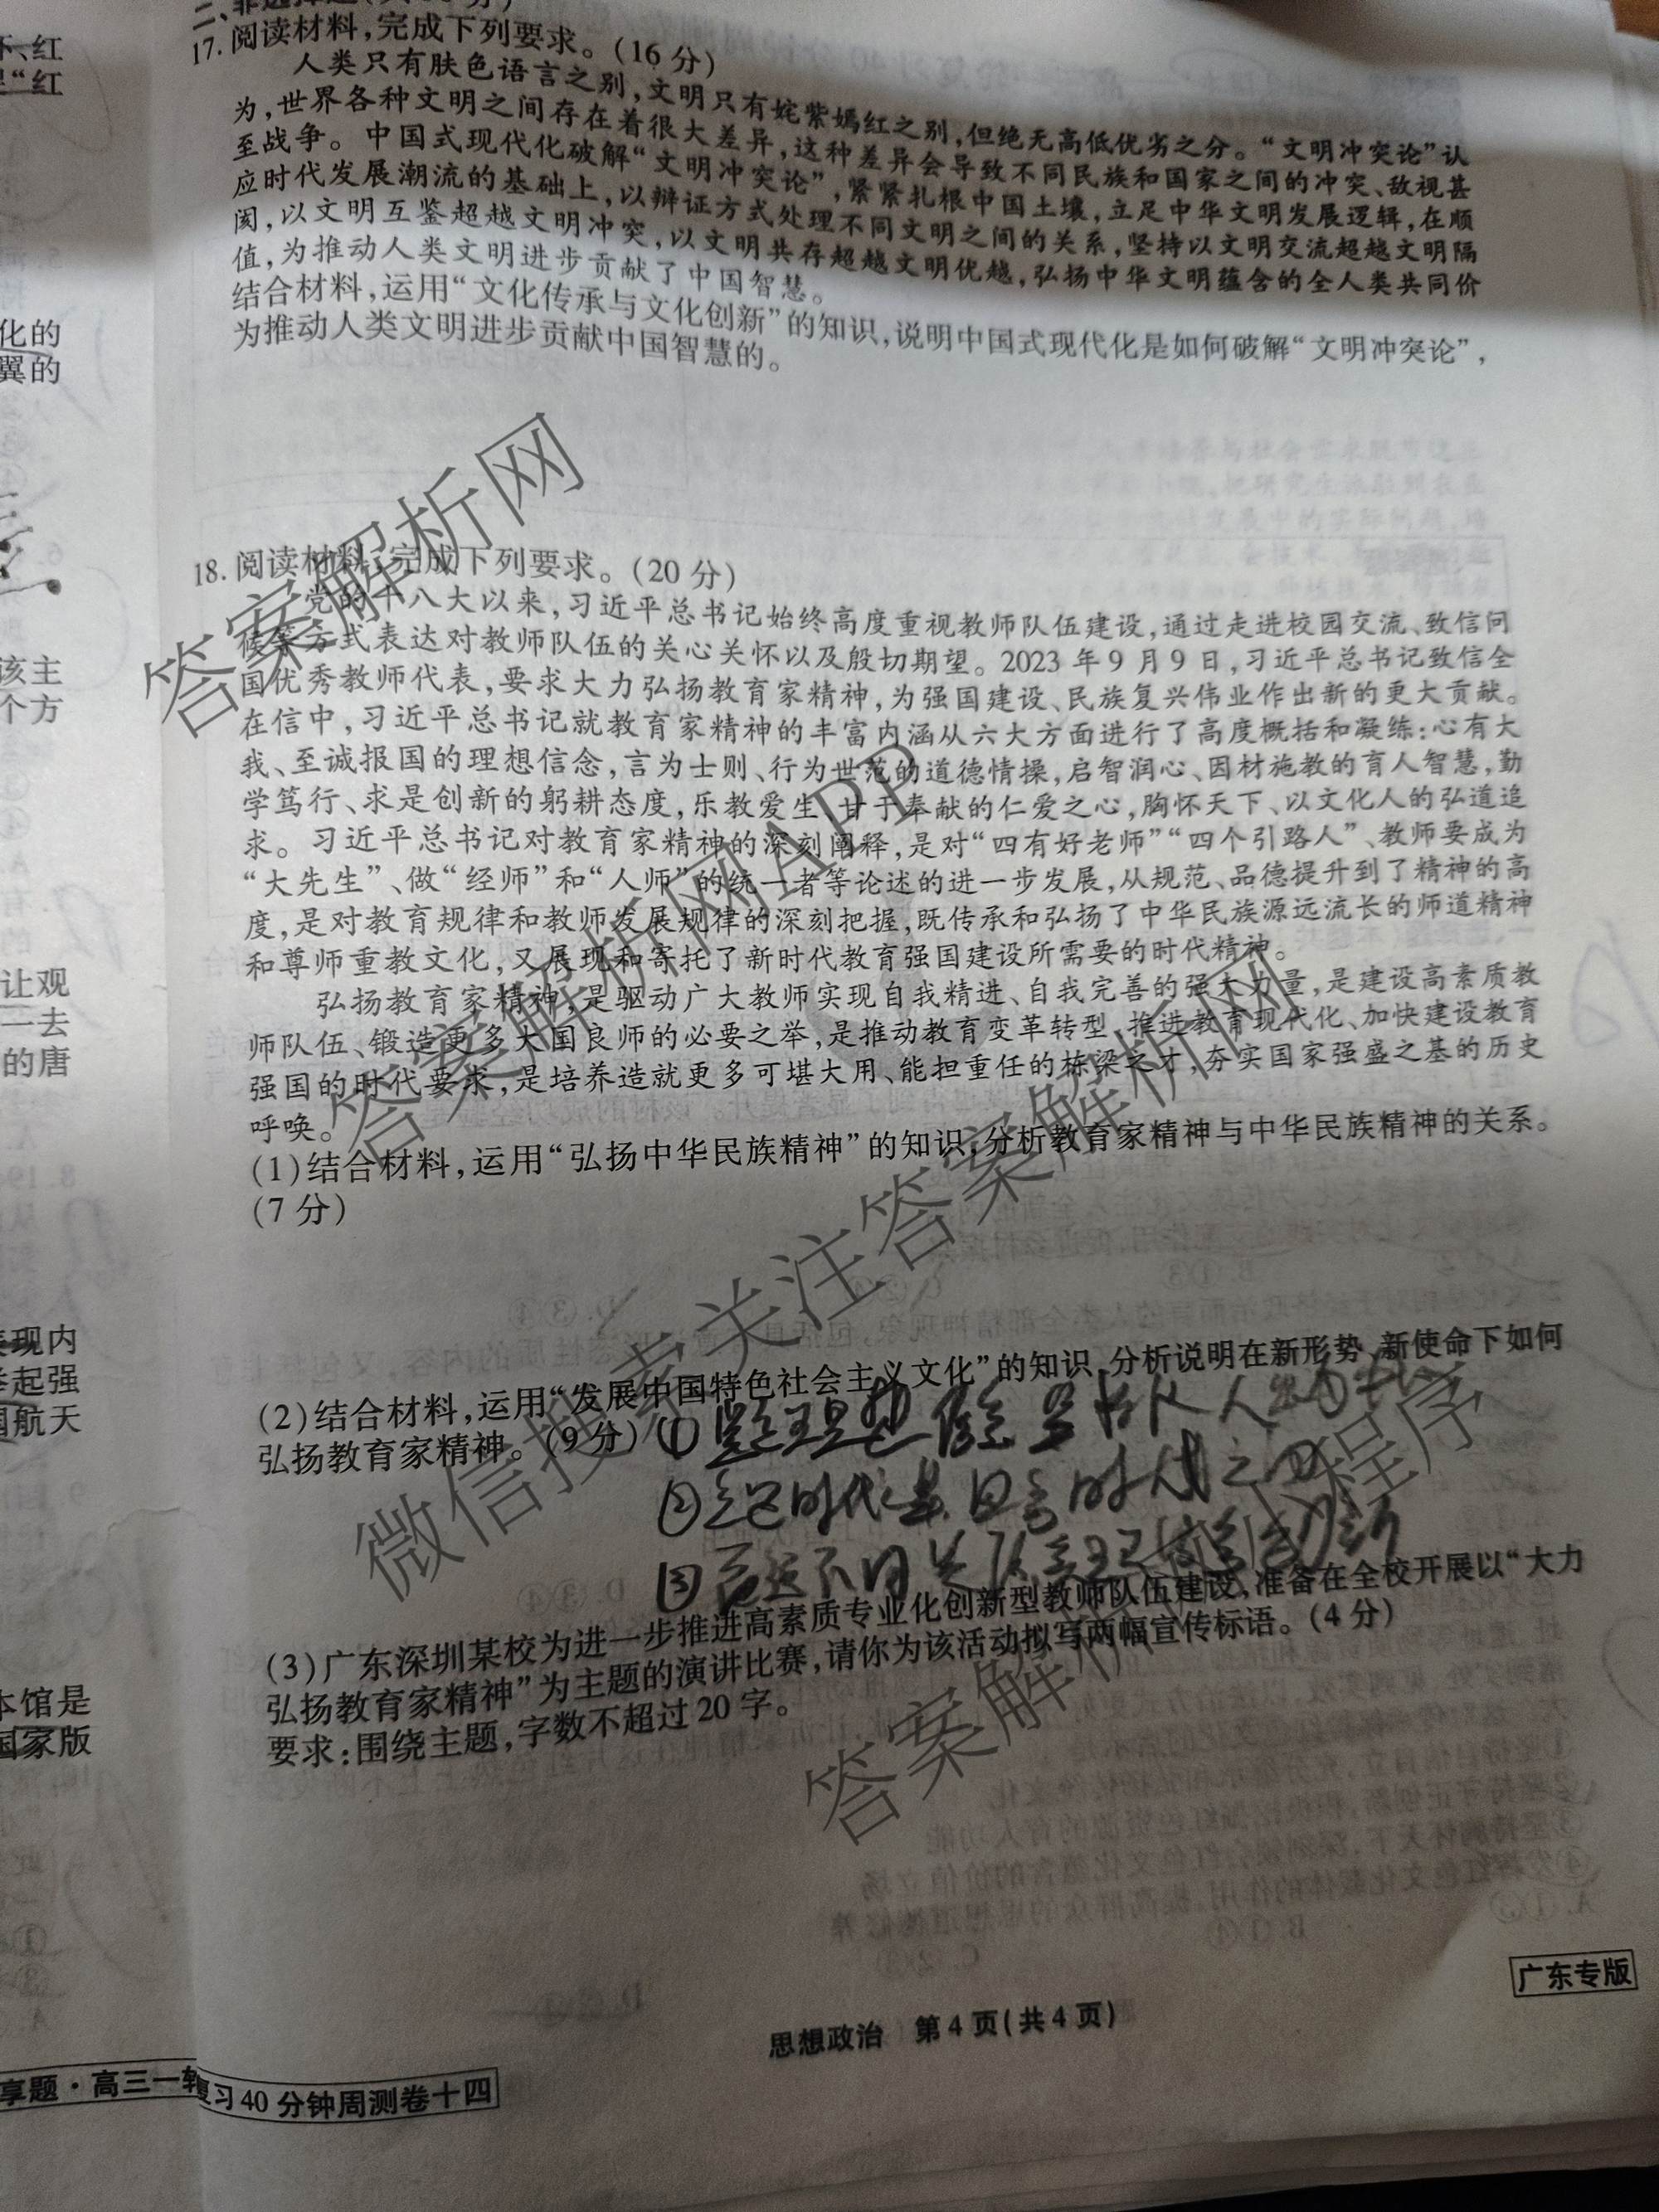 二、非选择题
17. 阅读材料,完成下列要求。(16分)
人类只有肤色语言之别,文明只有姹紫嫣红之别,但绝无高低优劣之分。“文明冲突论”认
为,世界各种文明之间存在着很大差异,这种差异会导致不同民族和国家之间的冲突、敌视甚
至战争。中国式现代化破解“文明冲突论”,紧紧扎根中国土壤,立足中华文明发展逻辑,在顺
应时代发展潮流的基础上,以辩证方式处理不同文明之间的关系,坚持以文明交流超越文明隔
阂,以文明互鉴超越文明冲突,以文明共存超越文明优越,弘扬中华文明蕴含的全人类共同价
值,为推动人类文明进步贡献了中国智慧。
结合材料,运用“文化传承与文化创新”的知识,说明中国式现代化是如何破解“文明冲突论”,
为推动人类文明进步贡献中国智慧的。
18. 阅读材料,完成下列要求。(20分)
党的十八大以来,习近平总书记始终高度重视教师队伍建设,通过走进校园交流、致信问
候等方式表达对教师队伍的关心关怀以及殷切期望。2023年9月9日,习近平总书记致信全
国优秀教师代表,要求大力弘扬教育家精神,为强国建设、民族复兴伟业作出新的更大贡献。
在信中,习近平总书记就教育家精神的丰富内涵从六大方面进行了高度概括和凝练:心有大
我、至诚报国的理想信念,言为士则、行为世范的道德情操,启智润心、因材施教的育人智慧,勤
学笃行、求是创新的躬耕态度,乐教爱生、甘于奉献的仁爱之心,胸怀天下、以文化人的弘道追
求。习近平总书记对教育家精神的深刻阐释,是对“四有好老师”“四个引路人”、教师要成为
“大先生”、做“经师”和“人师”的统一者等论述的进一步发展,从规范、品德提升到了精神的高
度,是对教育规律和教师发展规律的深刻把握,既传承和弘扬了中华民族源远流长的师道精神
和尊师重教文化,又展现和寄托了新时代教育强国建设所需要的时代精神。
弘扬教育家精神,是驱动广大教师实现自我精进、自我完善的强大力量,是建设高素质教
师队伍、锻造更多大国良师的必要之举,是推动教育变革转型、推进教育现代化、加快建设教育
强国的时代要求,是培养造就更多可堪大用、能担重任的栋梁之才,夯实国家强盛之基的历史
呼唤。
(1)结合材料,运用“弘扬中华民族精神”的知识,分析教育家精神与中华民族精神的关系。
(7分)
(2)结合材料,运用“发展中国特色社会主义文化”的知识,分析说明在新形势、新使命下如何
弘扬教育家精神。(9分)
(3)广东深圳某校为进一步推进高素质专业化创新型教师队伍建设,准备在全校开展以“大力
弘扬教育家精神”为主题的演讲比赛,请你为该活动拟写两幅宣传标语。(4分)
要求:围绕主题,字数不超过20字。
广东专版
思想政治 第4页(共4页)
享题·高三一轮复习40分钟周测卷十四
环、红
“红
化的
翼的
该主
个方
让观
一去
的唐
表现内
举起强
国航天
本馆是
国家版
答案解析网
答案解析网APP
微信搜索关注答案解析网
答案解析网小程序